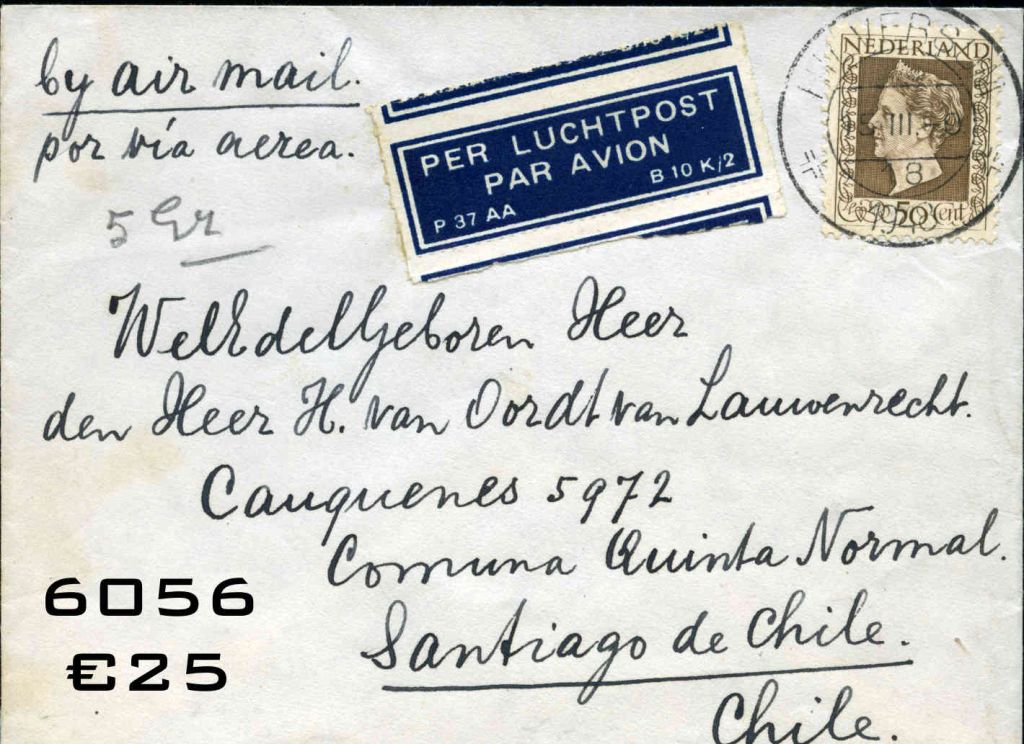 by air mail.
por vía aerea.
5 Gr
PER LUCHTPOST
PAR AVION
P 37 AA
B 10 K/2
NEDERLAND
50 cent
8
1948
WelEdelGeboren Heer
den Heer H. van Oordt van Lauwenrecht.
Cauquenes 5972
Comuna Quinta Normal.
Santiago de Chile.
Chile.
6056
€25